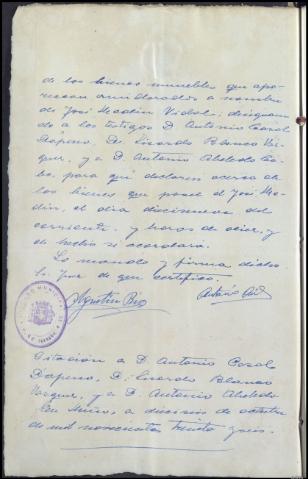 de los bienes muebles que apa-
rezcan amillarados a nombre
de José Maclin Vidal; designan-
do a los testigos D. Antonio Casal
Dapena, D. Lisardo Blanco Váz-
quez, y a D. Antonio Abeledo Ca-
bo, para que declaren acerca de
los bienes que posee el José
el día diecinueve del
corriente, y horas de once, y
de hecho se acordará.
Lo mandó y firma dicho
Sr. Juez de que certifico.
Agustín Antonio
Citación a D. Antonio Casal
Dapena, D. Lisardo Blanco
Vázquez, y a D. Antonio Abeledo
a dieciseis de octubre
de mil novecientos treinta y seis.